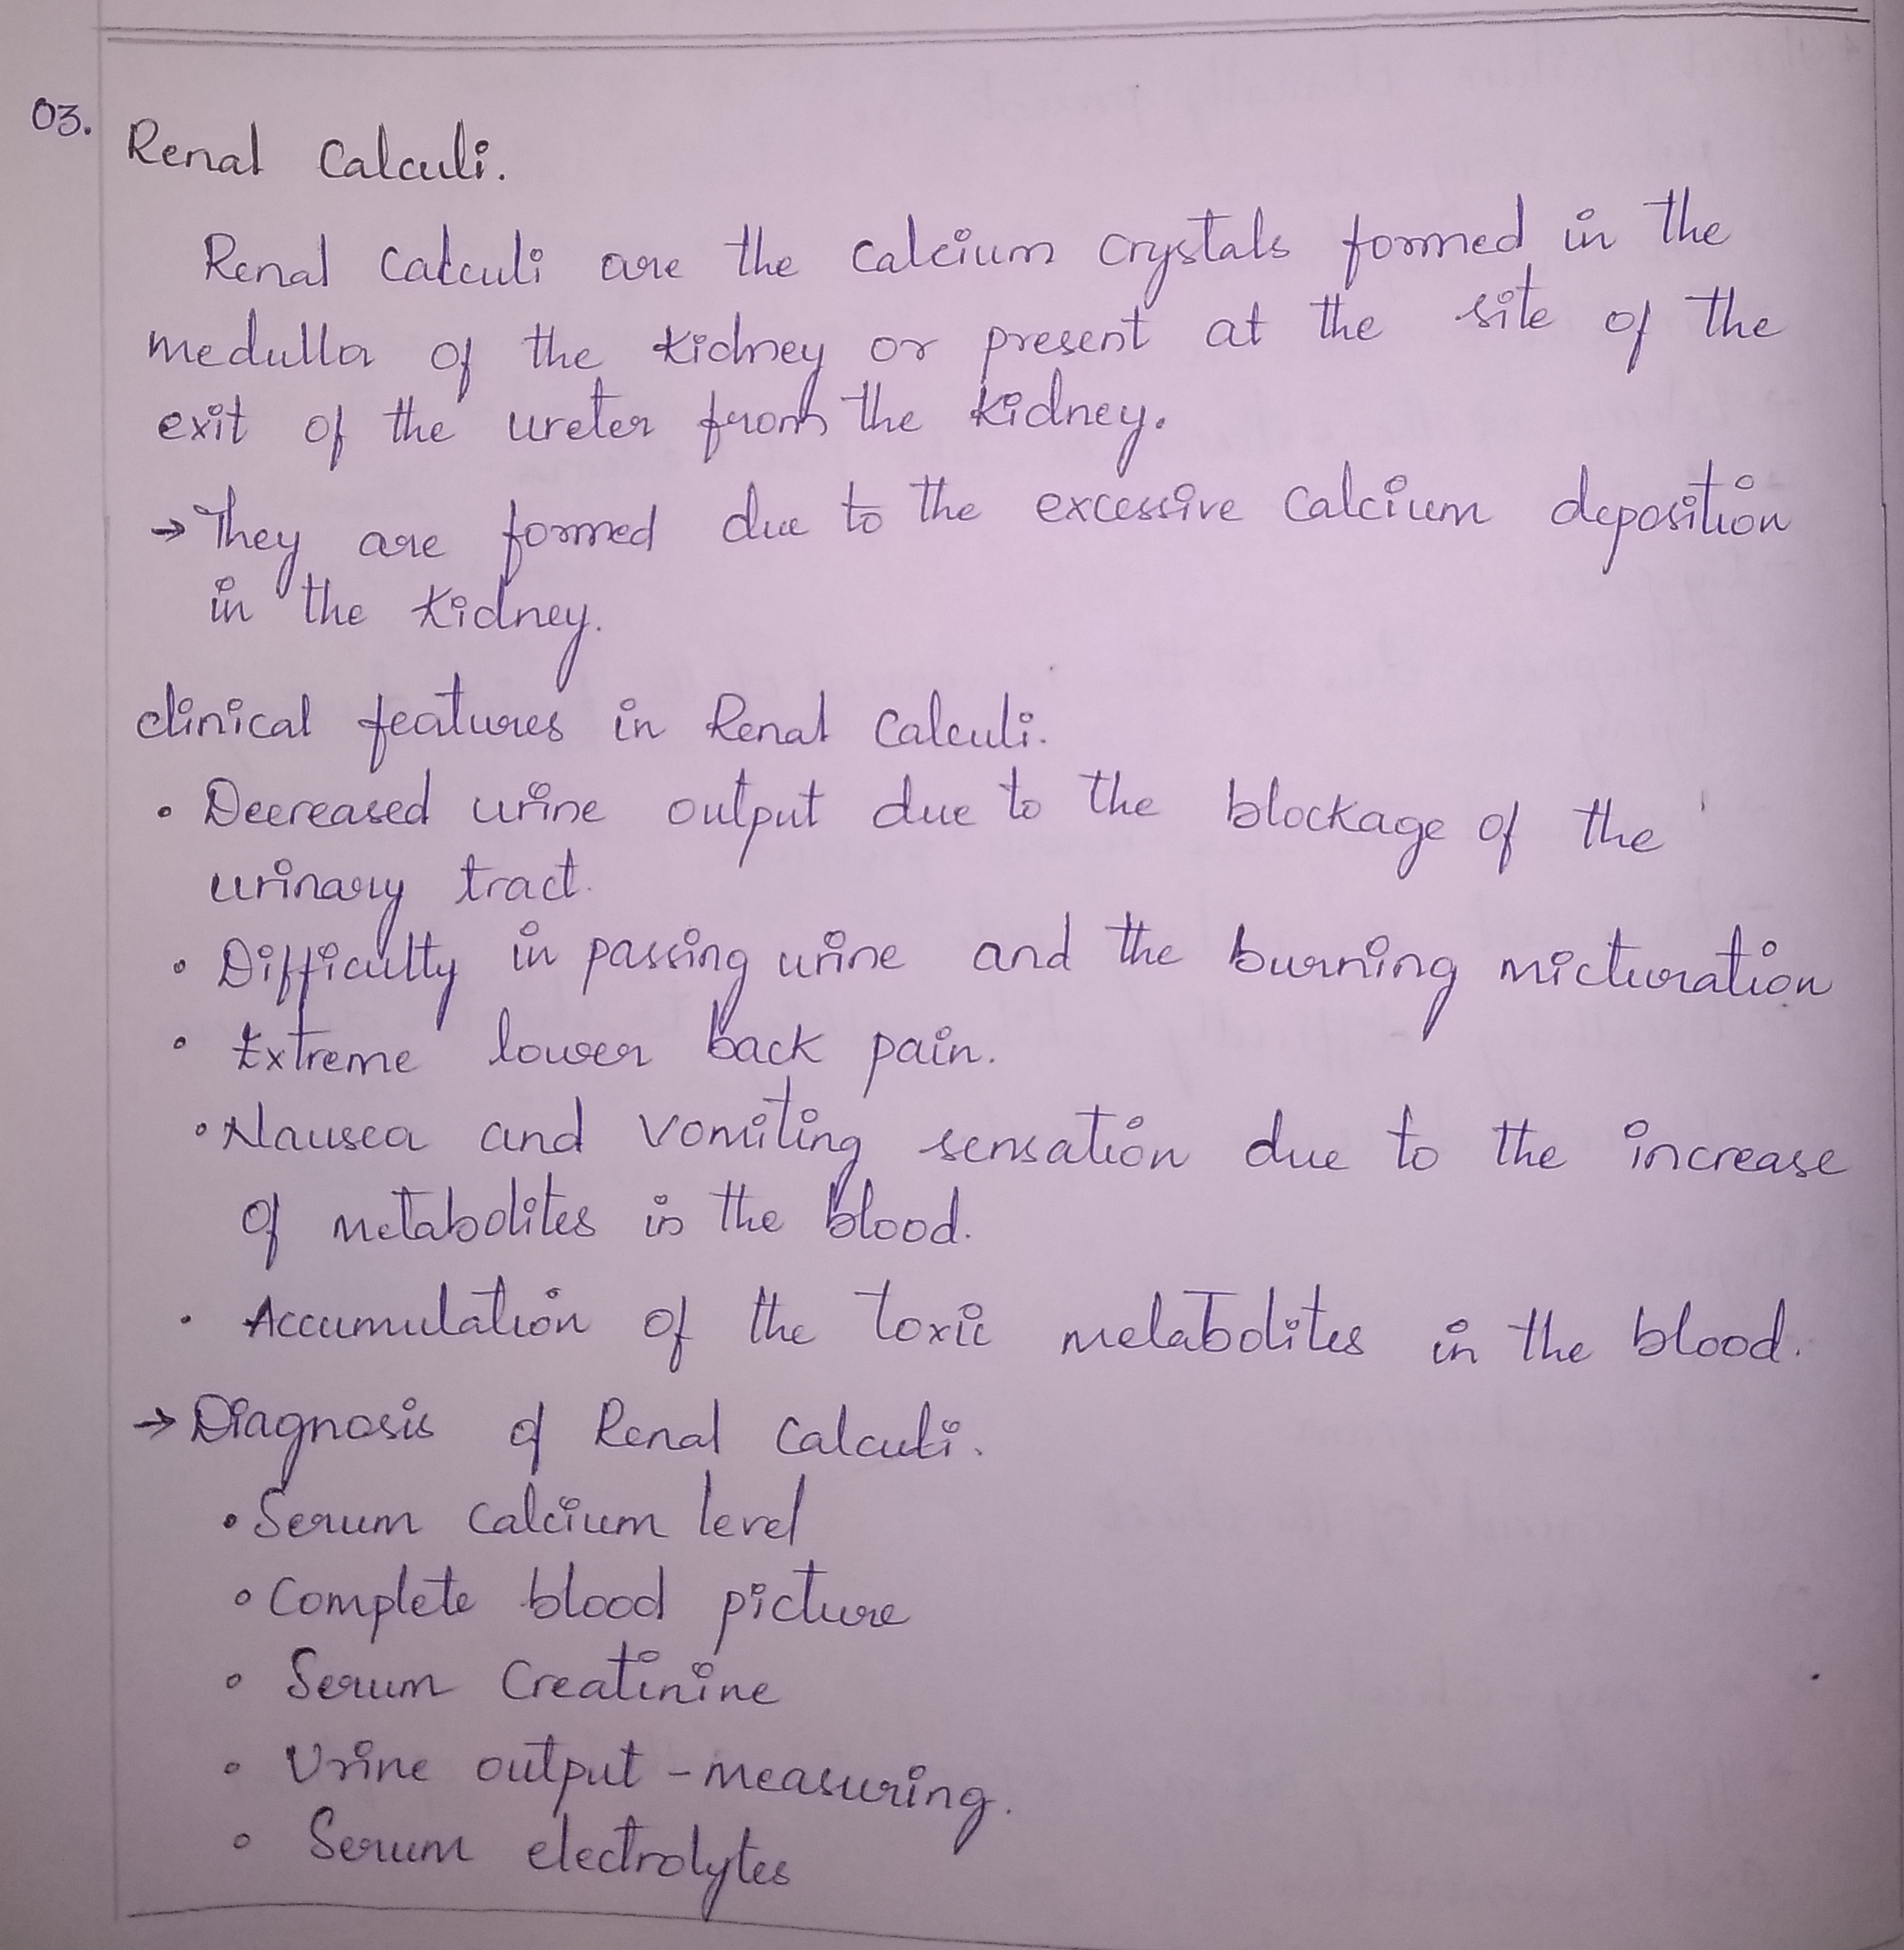 03.
Renal Calculi.
Renal Calculi are the Calcium Crystals formed in the
medulla of the kidney or present at the site of the
exit of the ureter from the kidney.
→ They are formed due to the excessive Calcium deposition
in the kidney.
clinical features in Renal Calculi.
• Decreased urine output due to the blockage of the
urinary tract.
• Difficulty in passing urine and the burning micturation
• Extreme lower back pain.
• Nausea and vomiting sensation due to the increase
of metabolites in the blood.
• Accumulation of the toxic metabolites in the blood.
→ Diagnosis of Renal Calculi.
• Serum Calcium level
• Complete blood picture
• Serum Creatinine
• Urine output - measuring.
• Serum electrolytes